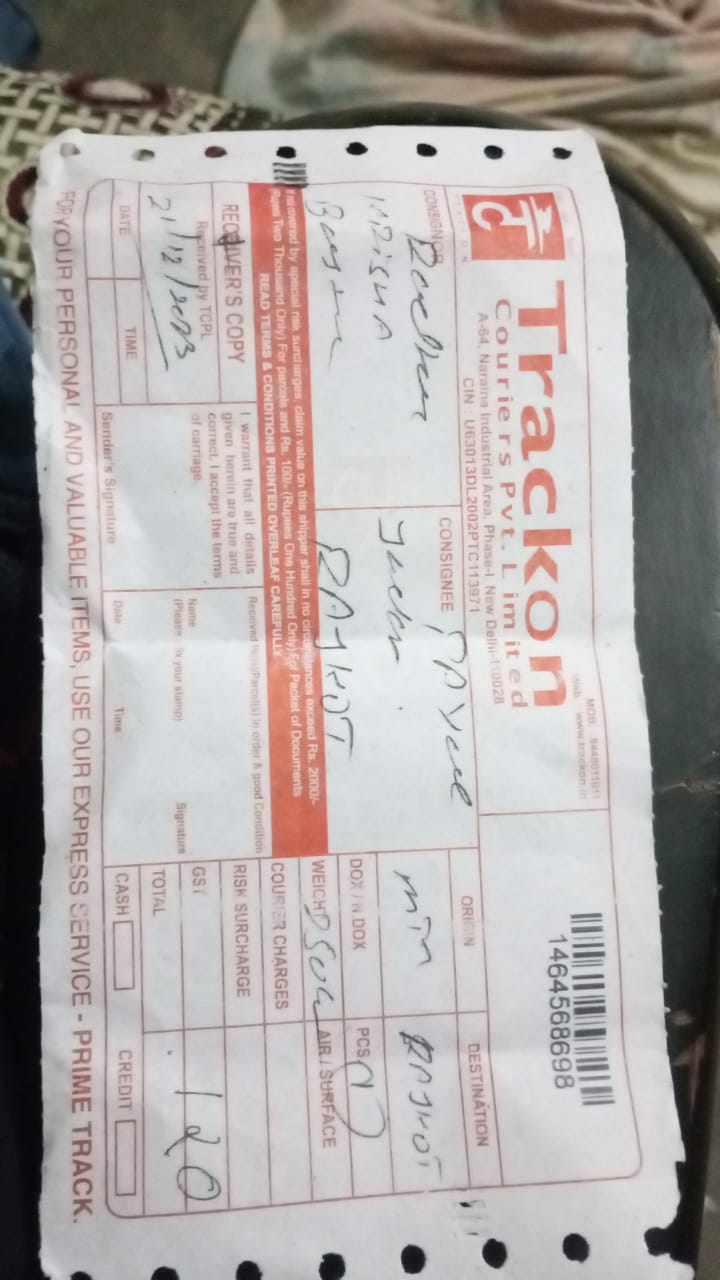 Trackon
Couriers Pvt. Limited
A-64, Naraina Industrial Area, Phase-I, New Delhi-110028
CIN : U63013DL2002PTC113971
MOB.: 8448011011
Web. : www.trackon.in
1464568698
CONSIGNOR
CONSIGNEE
ORIGIN
DESTINATION
RAJKOT
RAJKOT
DOX / N.DOX
PCS
WEIGHT
AIR / SURFACE
COURIER CHARGES
RISK SURCHARGE
GST
TOTAL
120
CASH
CREDIT
covered by special risk surcharges, claim value on this shipper shall in no circumstances exceed Rs. 2000/-
(Rupees Two Thousand Only) For parcels and Rs. 100/- (Rupees One Hundred Only) For Packet of Documents
READ TERMS & CONDITIONS PRINTED OVERLEAF CAREFULLY
RECEIVER'S COPY
Received by TCPL
21/12/2023
DATE
TIME
I warrant that all details
given herein are true and
correct. I accept the terms
of carriage.
Sender's Signature
in order & good Condition
Name
(Please your stamp)
Signature
Date
Time
FOR YOUR PERSONAL AND VALUABLE ITEMS, USE OUR EXPRESS SERVICE - PRIME TRACK.